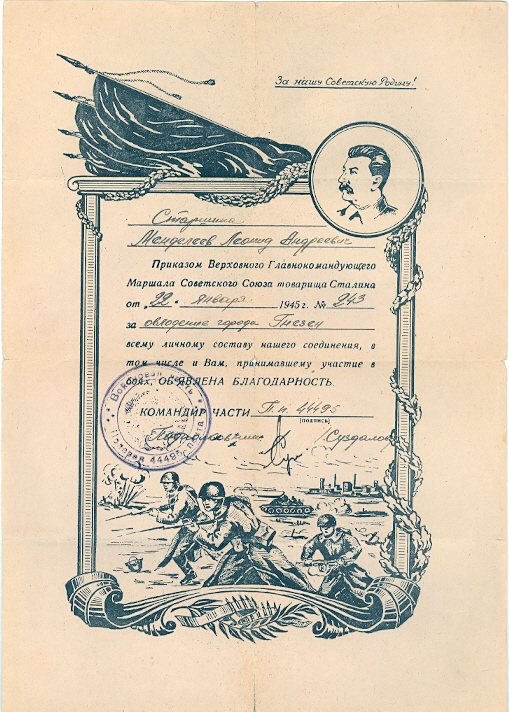 За нашу Советскую Родину!
Старшина
Менделеев Леонид Андреевич
Приказом Верховного Главнокомандующего
Маршала Советского Союза товарища Сталина
от „22" января 1945 г. № 243
за овладение города Гнезен
всему личному составу нашего соединения, в
том числе и Вам, принимавшему участие в
боях, ОБ'ЯВЛЕНА БЛАГОДАРНОСТЬ.
КОМАНДИР ЧАСТИ П.п. 44495
(подпись)
Подполковник /Суздалов/
Войсковая часть
полевая почта 44495